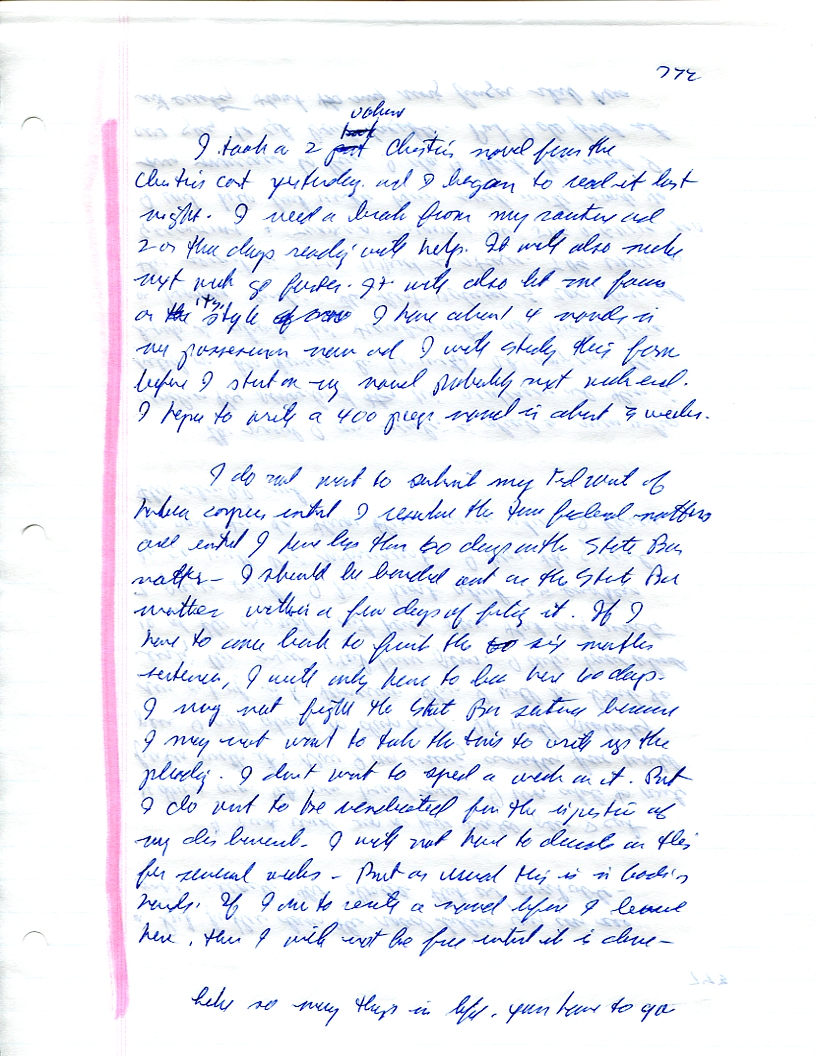 volume
I took a 2 Christies novel from the
Christies cart yesterday and I began to read it last
night. I need a break from my routine and
2 or three days reading will help. It will also make
next week go faster. It will also let me focus
on "its" style I have about 4 novels in
my possession now and I will study this form
before I start on my novel probably next weekend.
I hope to write a 400 page novel in about 3 weeks.
I do not want to submit my Fed writ of
habeas corpus until I resolve the four federal matters
and until I have less than 60 days on the State Bar
matter - I should be bonded out on the State Bar
matter within a few days of filing it. If I
have to come back to finish the six months
sentence, I will only have to be here 60 days.
I may not fight the State Bar sentence because
I may not want to take the time to write up the
pleading. I don't want to spend a week on it. But
I do want to be vindicated for the injustice of
my disbarment. I will not have to decide on this
for several weeks - But as usual this is in God's
hands. If I am to write a novel before I leave
here, then I will not be free until it is done -
Like so many things in life, you have to go